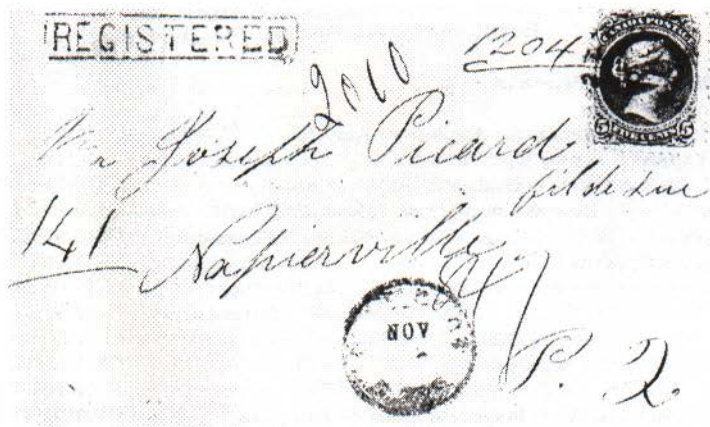 REGISTERED
1204
CANADA POSTAGE
5 5
2010
Mr Joseph Picard
fils de Luc
141
Napierville
NOV
P. Q